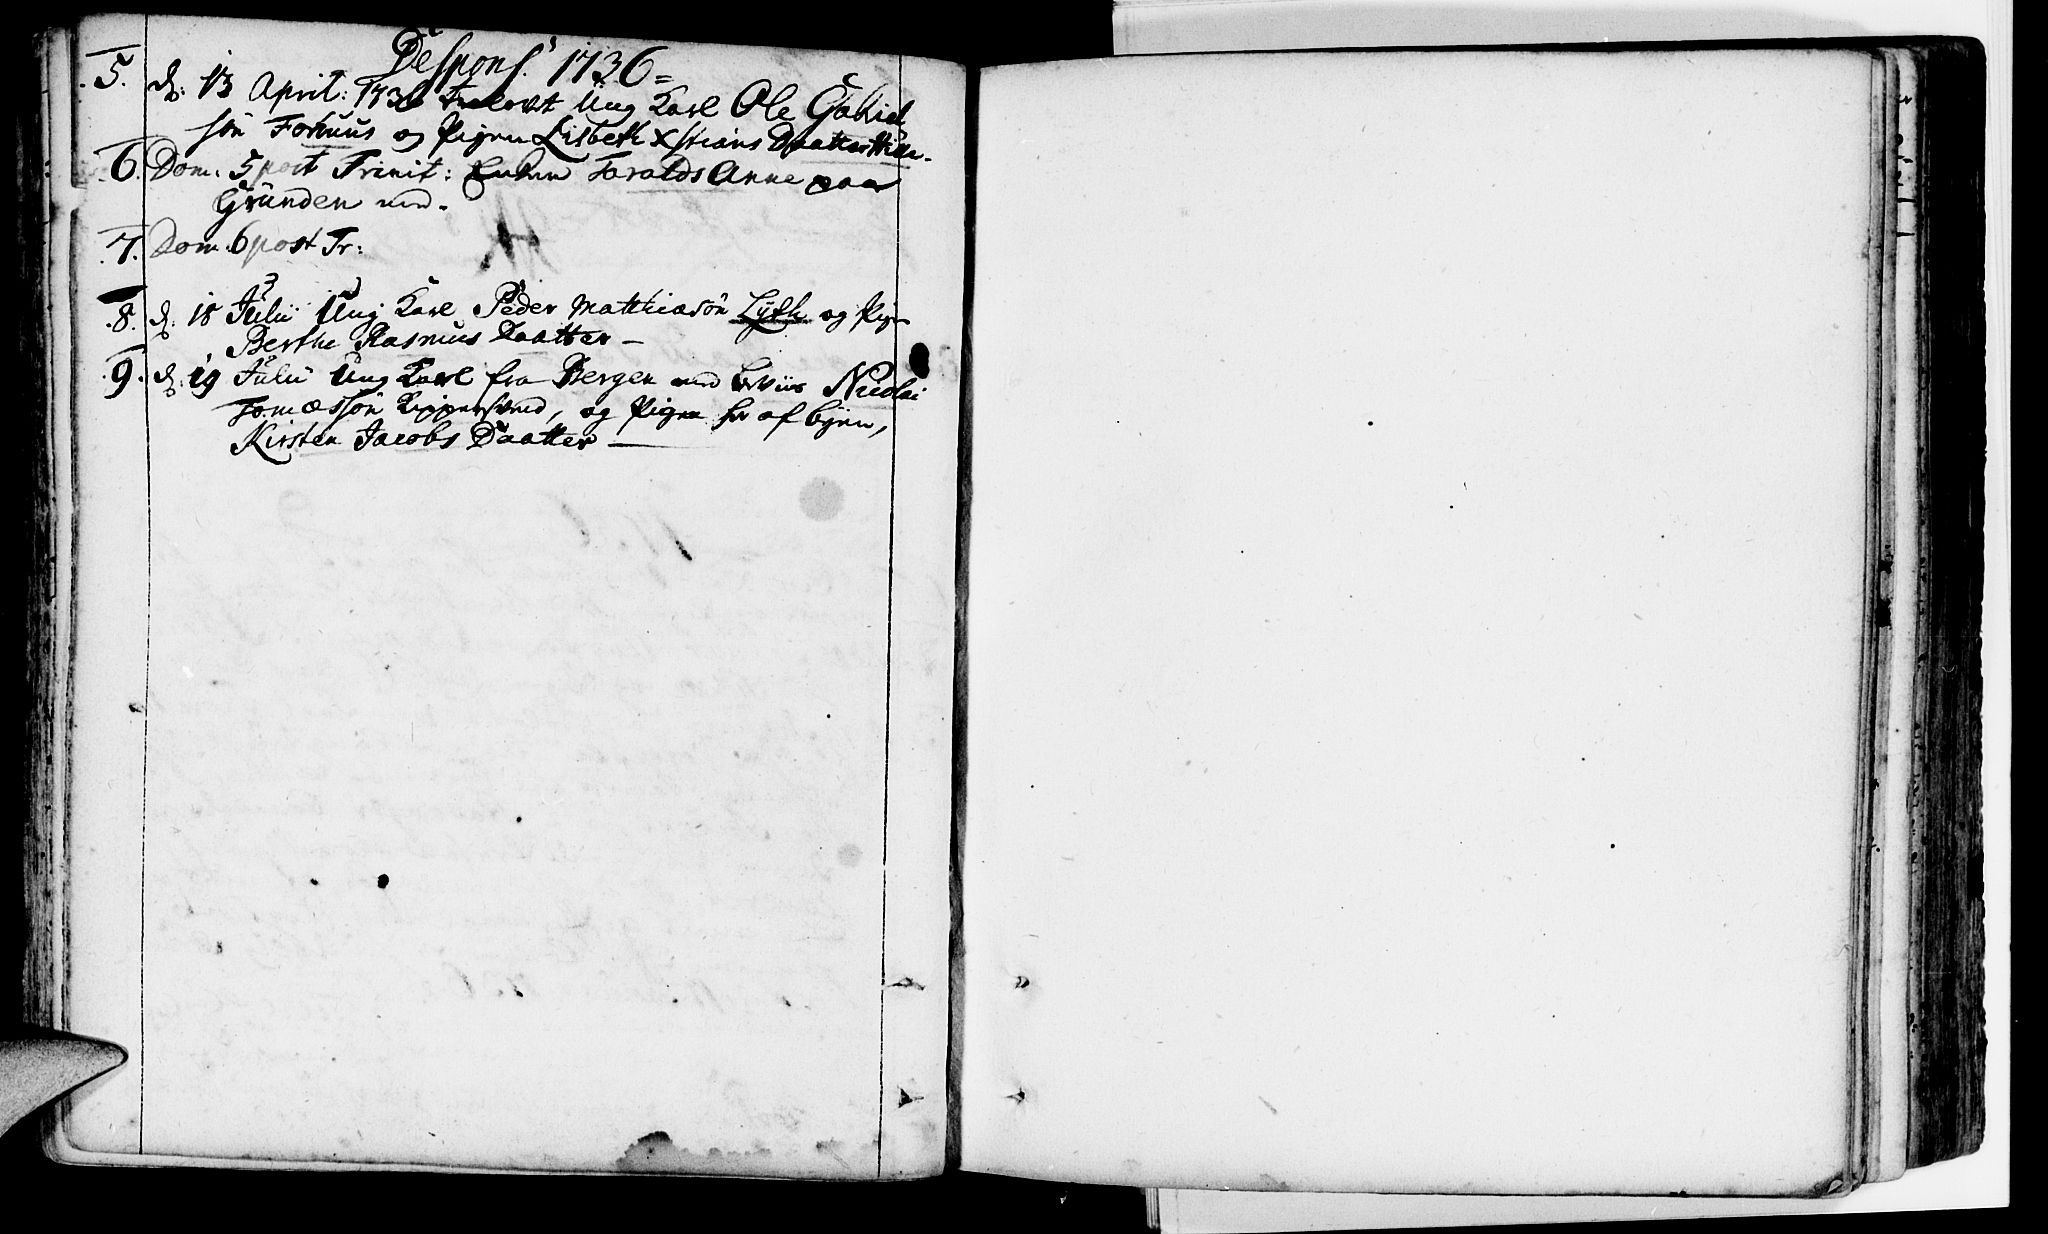 Despons. 1736
5. d: 13 April: 1736 trolovt Ung Karl Ole Gabriel
søn Forhuus og Pigen Lisbeth Xstians Daatter
6. Dom. 5 post Trinit: Enken Toralds Anne paa
Grunden
7. Dom. 6 post Tr:
8. d: 18 Julii Ung Karl Peder Matthiæsøn Lyth og Pigen
Berthe Rasmus Daatter —
9. d: 19 Julii Ung Karl fra Bergen med Nicolai
Tomæssøn, og Pigen her af byen,
Kirsten Jacobs Daatter —